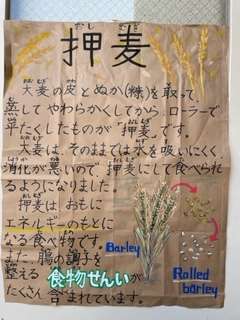 おしむぎ
押麦
大麦の皮とぬか(糠)を取って、
蒸してやわらかくしてから、ローラーで
平たくしたものが「押麦」です。
大麦は、そのままでは水を吸いにくく
消化が悪いので、押麦にして食べられ
るようになりました。
押麦はおもに
エネルギーのもとに
なる食べ物です。
また腸の調子を
整える食物せんいが
たくさん含まれています。
Barley
Rolled
barley